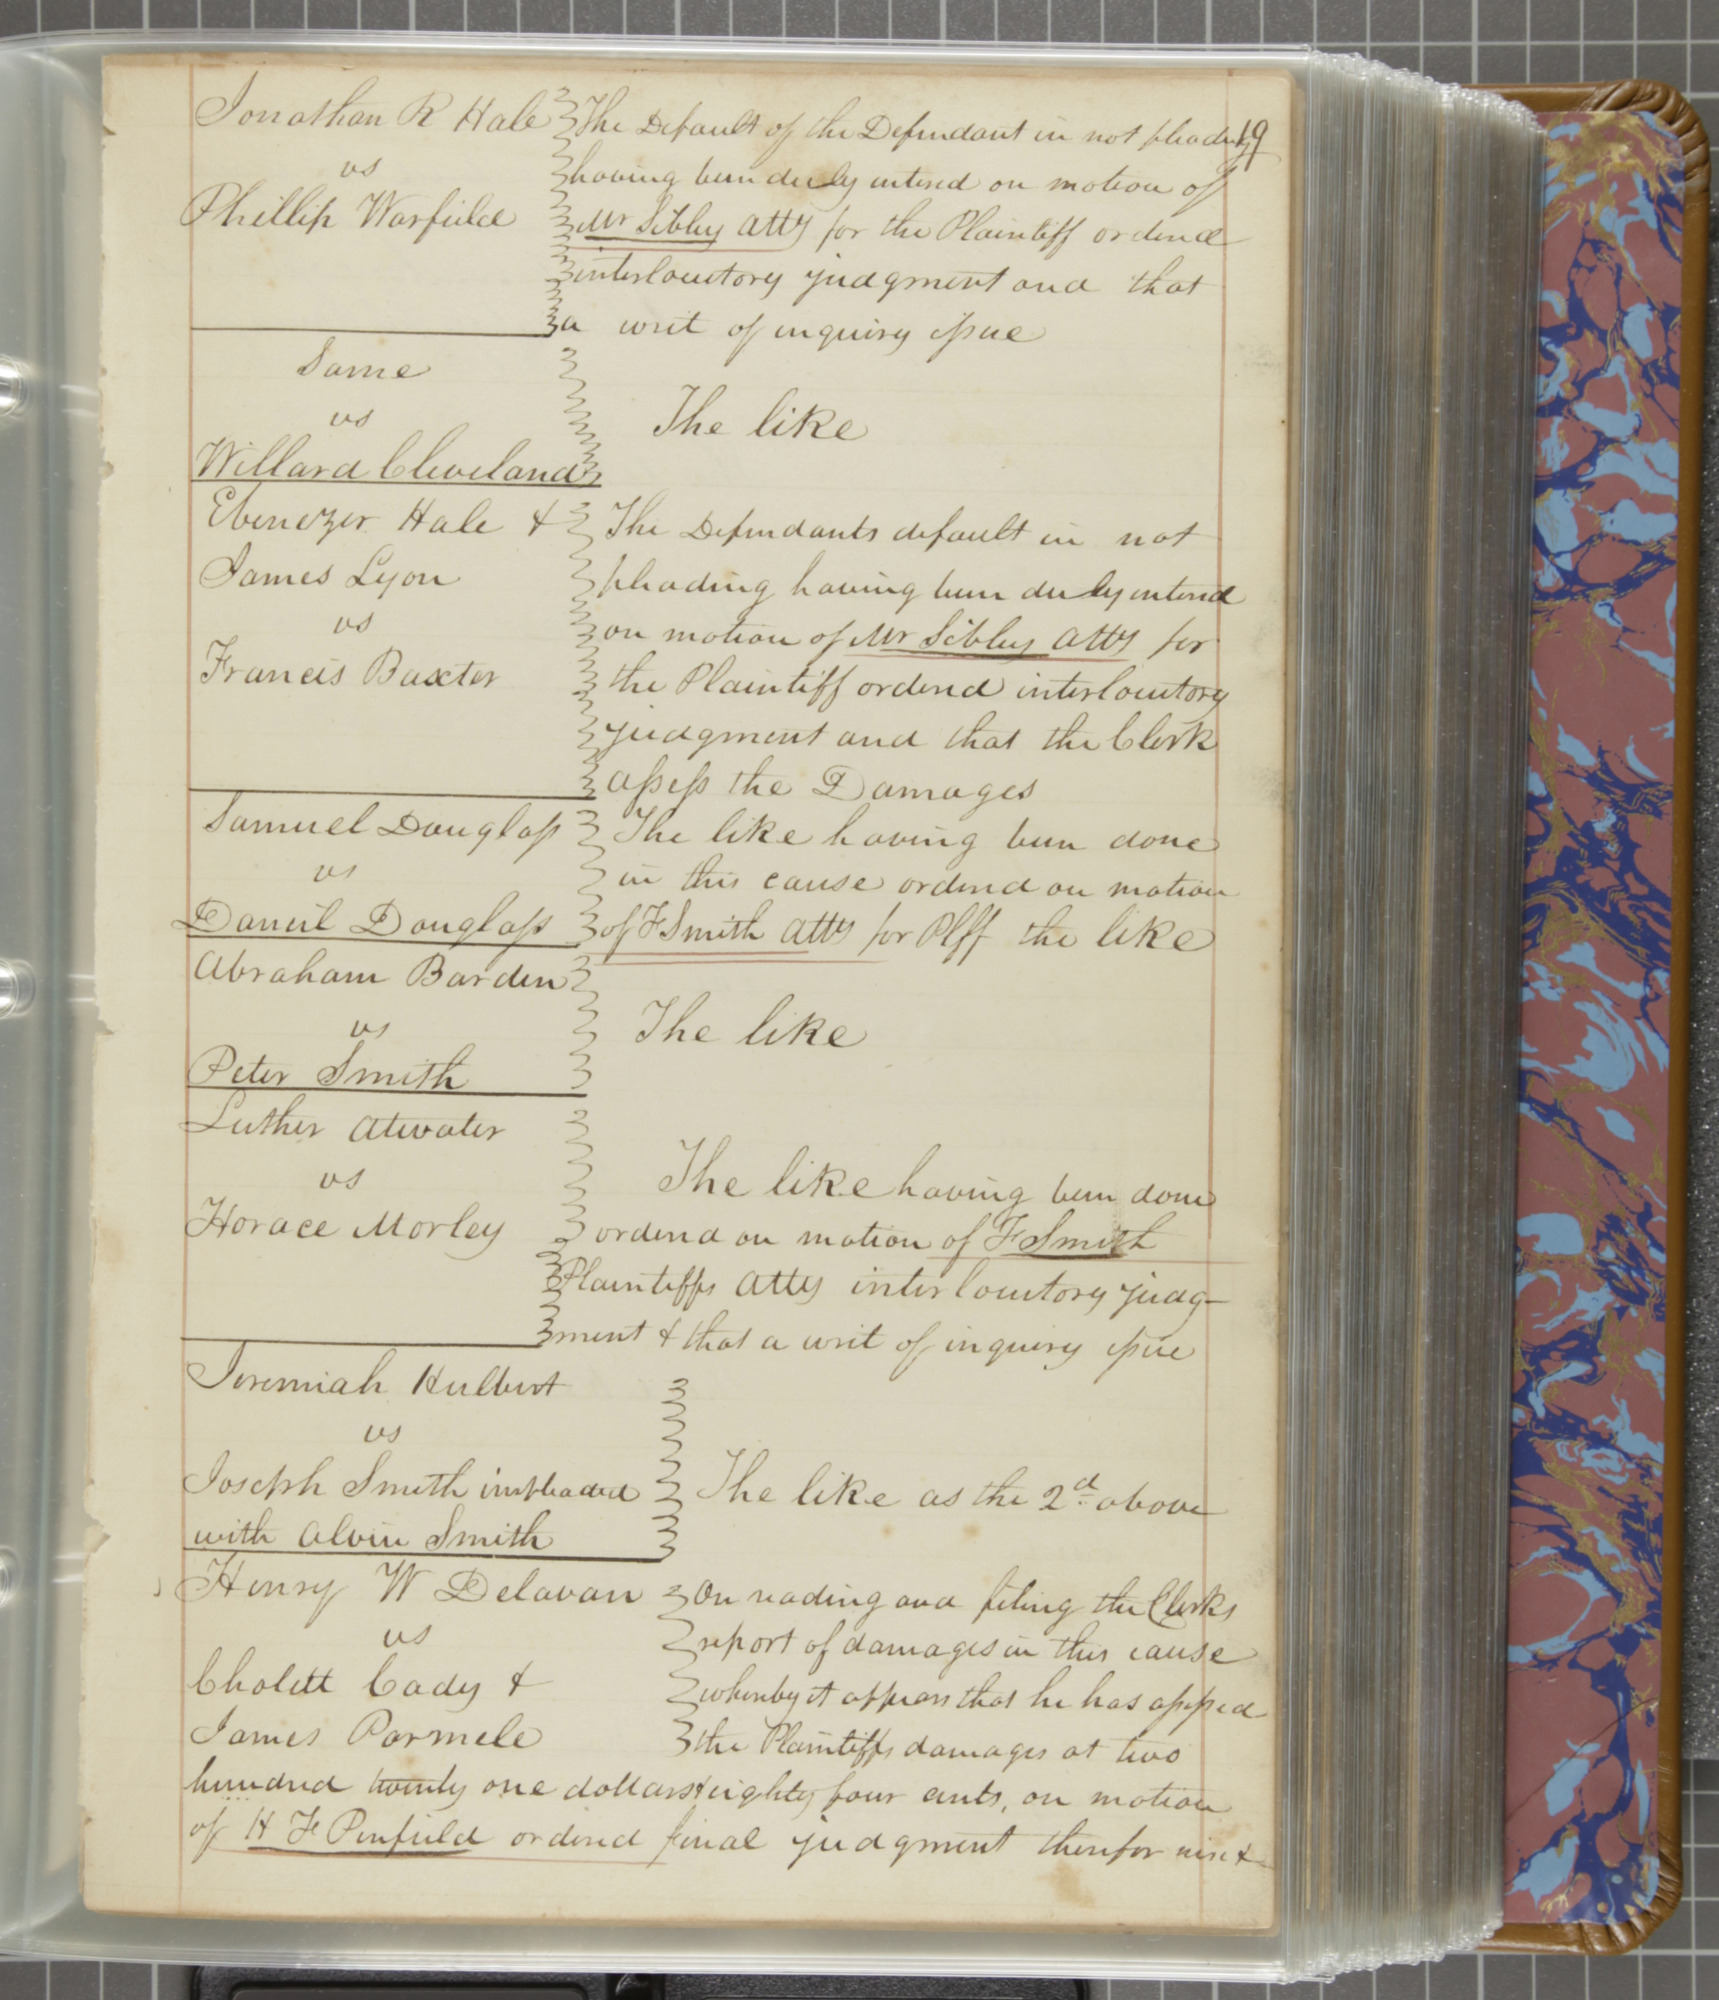 19
Jonathan R Hale
vs
Phillip Warfield
The Default of the Defendant in not pleading
having been duly entered on motion of
Mr Sibley Atty for the Plaintiff ordered
interlocutory judgment and that
a writ of inquiry issue
Same
vs
Willard Cleveland
The like
Ebenezer Hale &
James Lyon
vs
Francis Baxter
The Defendants default in not
pleading having been duly entered
on motion of Mr Sibley Atty for
the Plaintiff ordered interlocutory
judgment and that the Clerk
assess the Damages
Samuel Douglass
vs
Daniel Douglass
The like having been done
in this cause ordered on motion
of F Smith Atty for Plff the like
Abraham Barden
vs
Peter Smith
The like
Luther Atwater
vs
Horace Morley
The like having been done
ordered on motion of F Smith
Plaintiffs Atty interlocutory judg-
ment & that a writ of inquiry issue
Jeremiah Hulbert
vs
Joseph Smith impleaded
with Alvin Smith
The like as the 2d above
Henry W Delavan
vs
Cholett Cady &
James Parmele
On reading and filing the Clerks
report of damages in this cause
whereby it appears that he has assessed
the Plaintiffs damages at two
hundred twenty one dollars & eighty four cents, on motion
of H F Penfield ordered final judgment therefor nisi &